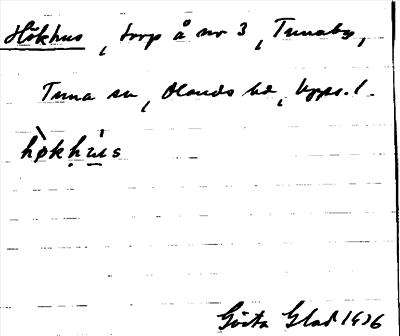 Hökhus, torp å nr 3, Tunaby,
Tuna sn, Olands hd, Upps. l.
hø̀khús
Gösta Glad 1936